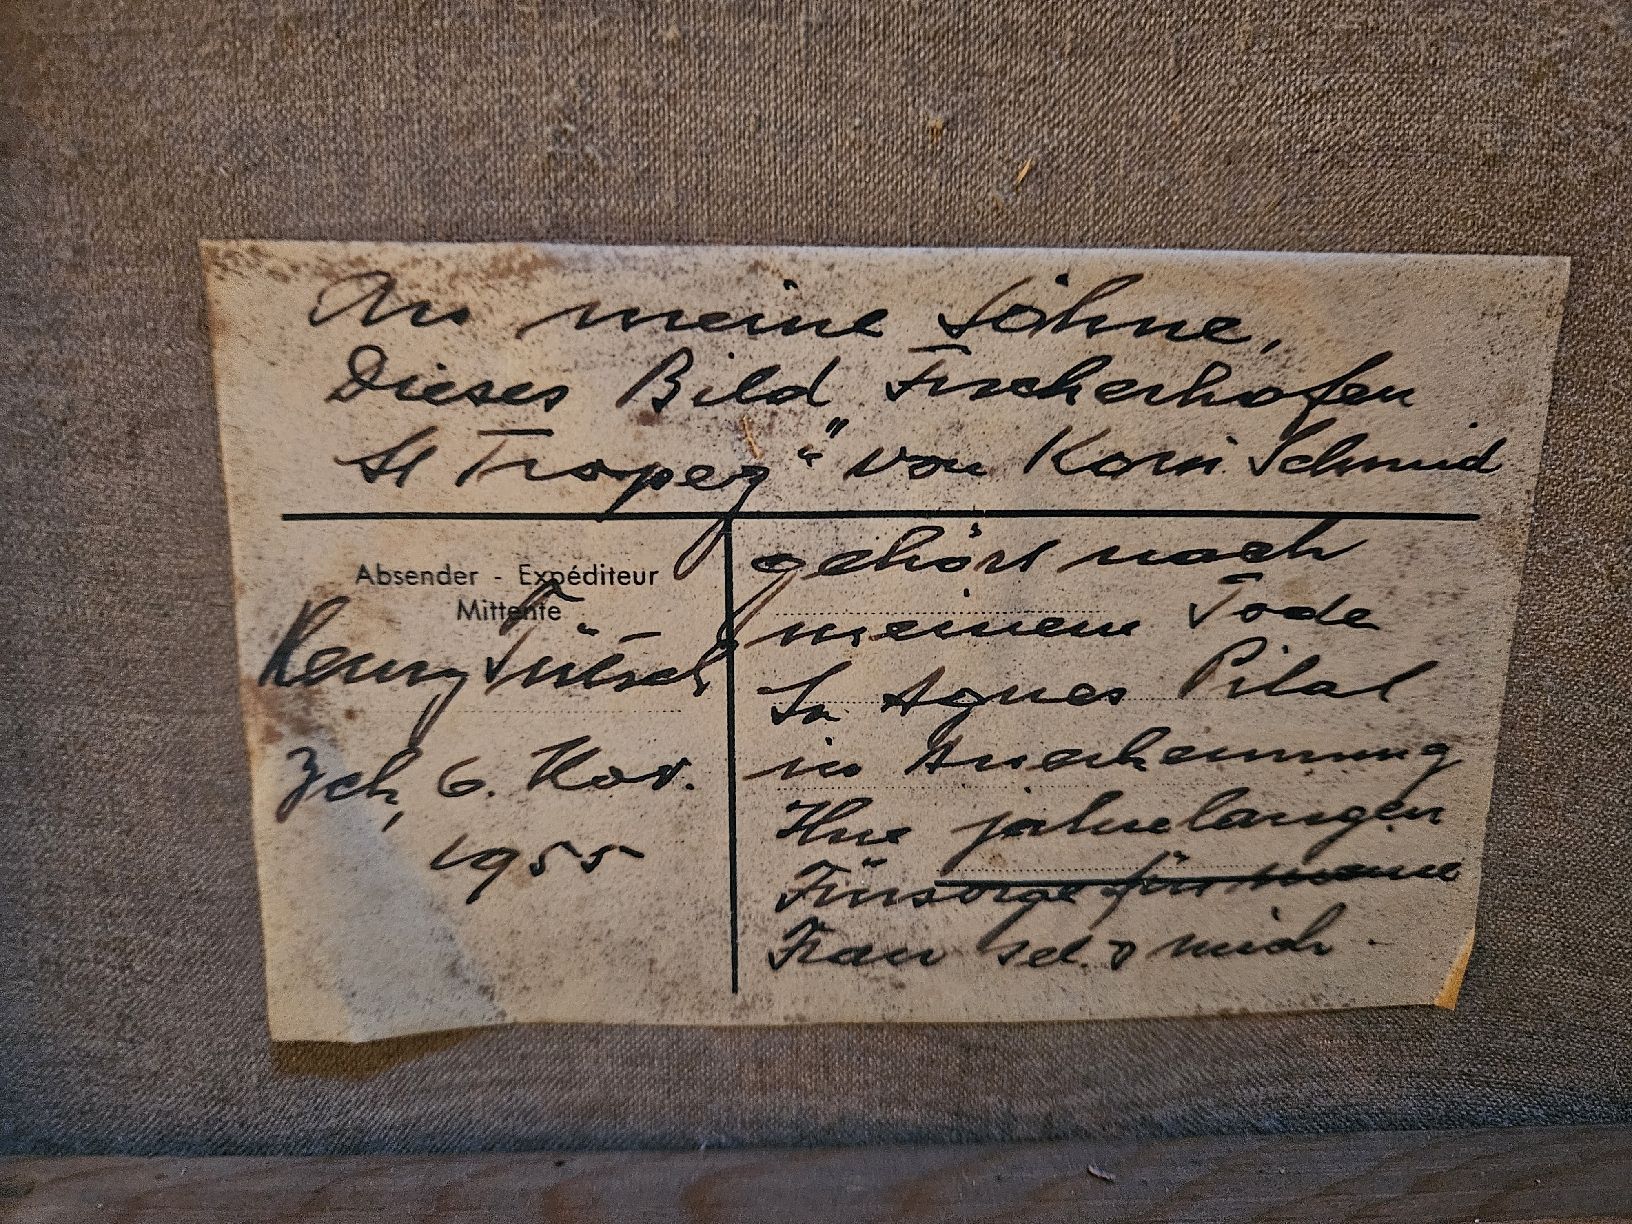 An meine Söhne,
Dieses Bild Fischerhafen
St Tropez" von Korn Schmid
gehört nach
meinem Tode
Agnes Pilat
in Anerkennung
Ihre jahrelangen
Fürsorge für meine
Frau sel. & mich.
Absender - Expéditeur
Mittente
Henry Tütsch
Zch, 6. Nov.
1955